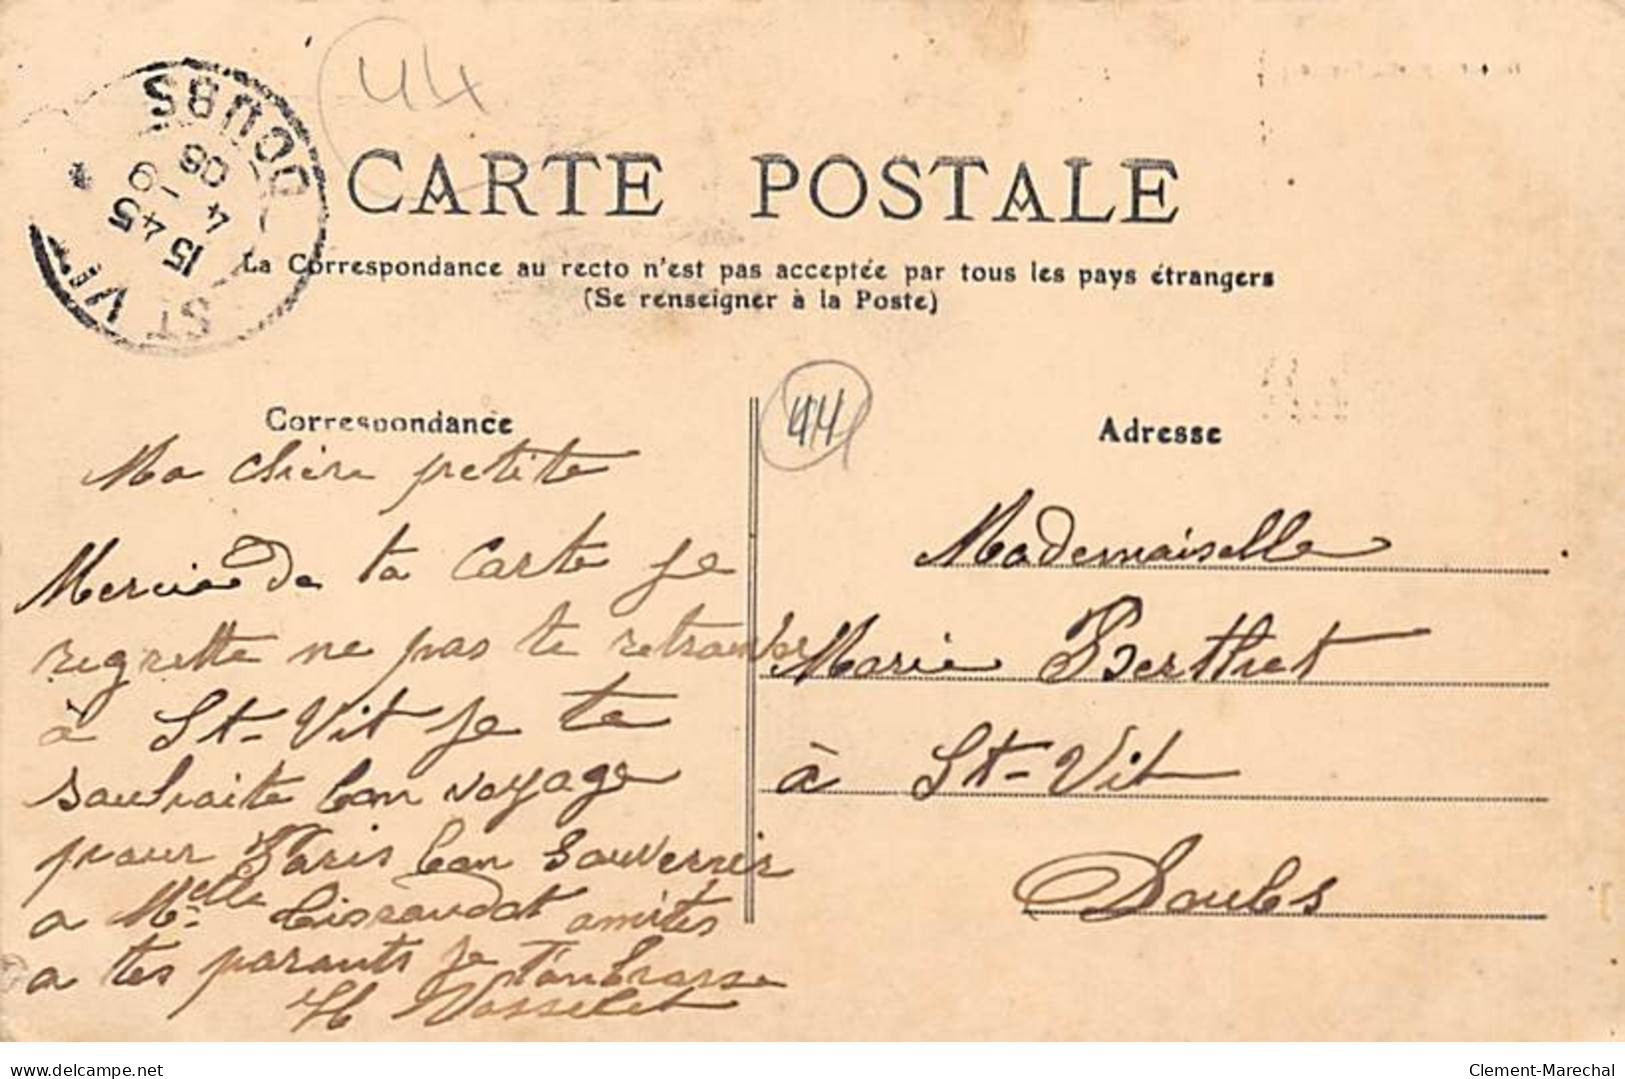 44
DOUBS
15 45
4 -9
06
ST VIT
CARTE POSTALE
La Correspondance au recto n'est pas acceptée par tous les pays étrangers
(Se renseigner à la Poste)
Correspondance
Ma chère petite
Mercie de ta Carte je
regrette ne pas te retrouver
à St-Vit je te
souhaite bon voyage
pour Paris bon souvernir
a Melle amités
a tes parants je t'embrasse
H Vasselet
44
Adresse
Mademoiselle
Marie Berthet
à St-Vit
Doubs
delcampe.net
Clement-Marechal